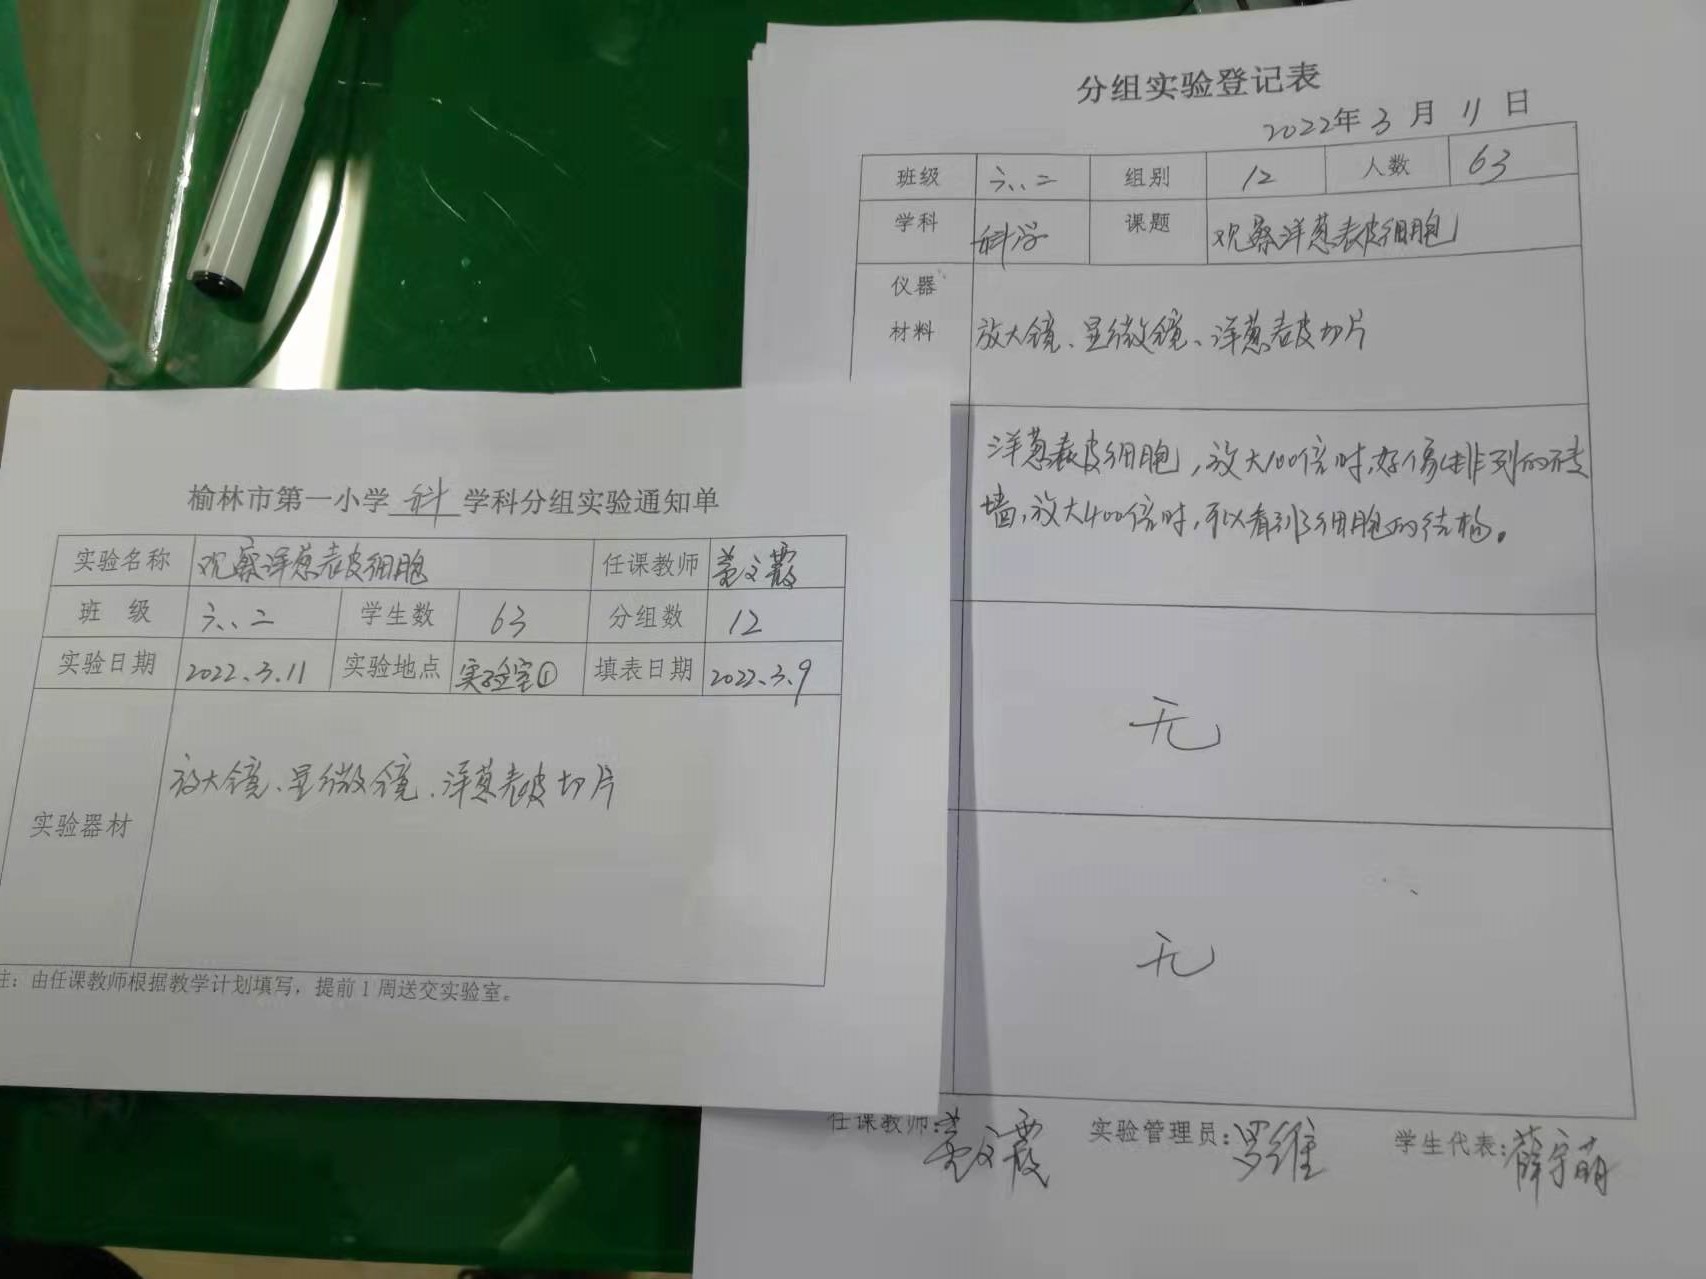 榆林市第一小学 科 学科分组实验通知单
实验名称 观察洋葱表皮细胞 任课教师 文霞
班 级 六、二 学生数 63 分组数 12
实验日期 2022.3.11 实验地点 实验室① 填表日期 2022.3.9
实验器材 放大镜、显微镜、洋葱表皮切片
注：由任课教师根据教学计划填写，提前1周送交实验室。
分组实验登记表
2022年3月11日
班级 六、二 组别 12 人数 63
学科 科学 课题 观察洋葱表皮细胞
仪器
材料 放大镜、显微镜、洋葱表皮切片
洋葱表皮细胞，放大100倍时，好像排列的砖
墙，放大400倍时，可以看到细胞的结构。
无
无
任课教师：文霞 实验管理员：罗维 学生代表：薛宇萌